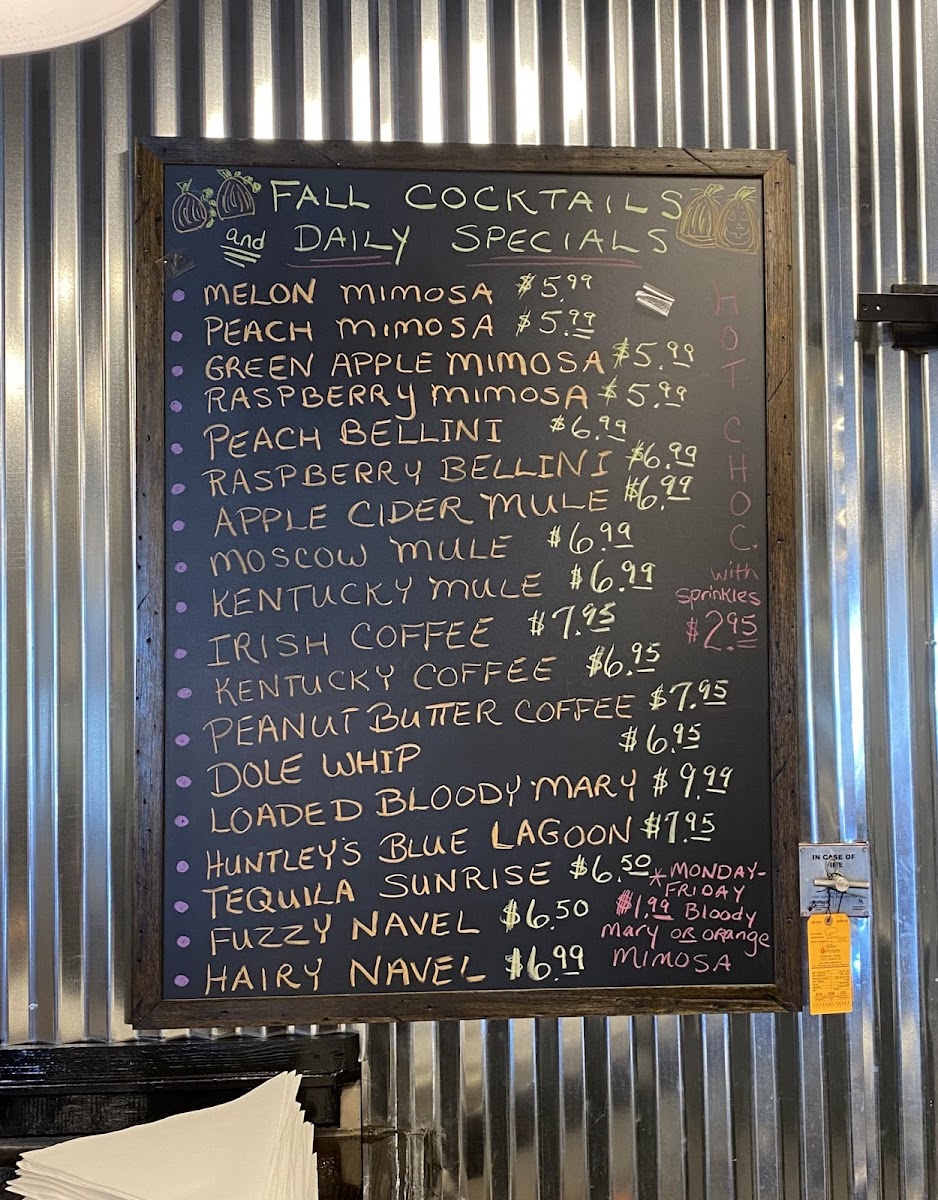 FALL COCKTAILS
and DAILY SPECIALS
MELON MIMOSA $5.99
PEACH MIMOSA $5.99
GREEN APPLE MIMOSA $5.99
RASPBERRY MIMOSA $5.99
PEACH BELLINI $6.99
RASPBERRY BELLINI $6.99
APPLE CIDER MULE $6.99
MOSCOW MULE $6.99
KENTUCKY MULE $6.99
IRISH COFFEE $7.95
KENTUCKY COFFEE $6.95
PEANUT BUTTER COFFEE $7.95
DOLE WHIP $6.95
LOADED BLOODY MARY $9.99
HUNTLEY'S BLUE LAGOON $7.95
TEQUILA SUNRISE $6.50
FUZZY NAVEL $6.50
HAIRY NAVEL $6.99
HOT CHOC.
with
sprinkles
$2.95
*MONDAY-
FRIDAY
$1.99 Bloody
Mary OR ORange
MIMOSA
IN CASE OF
FIRE